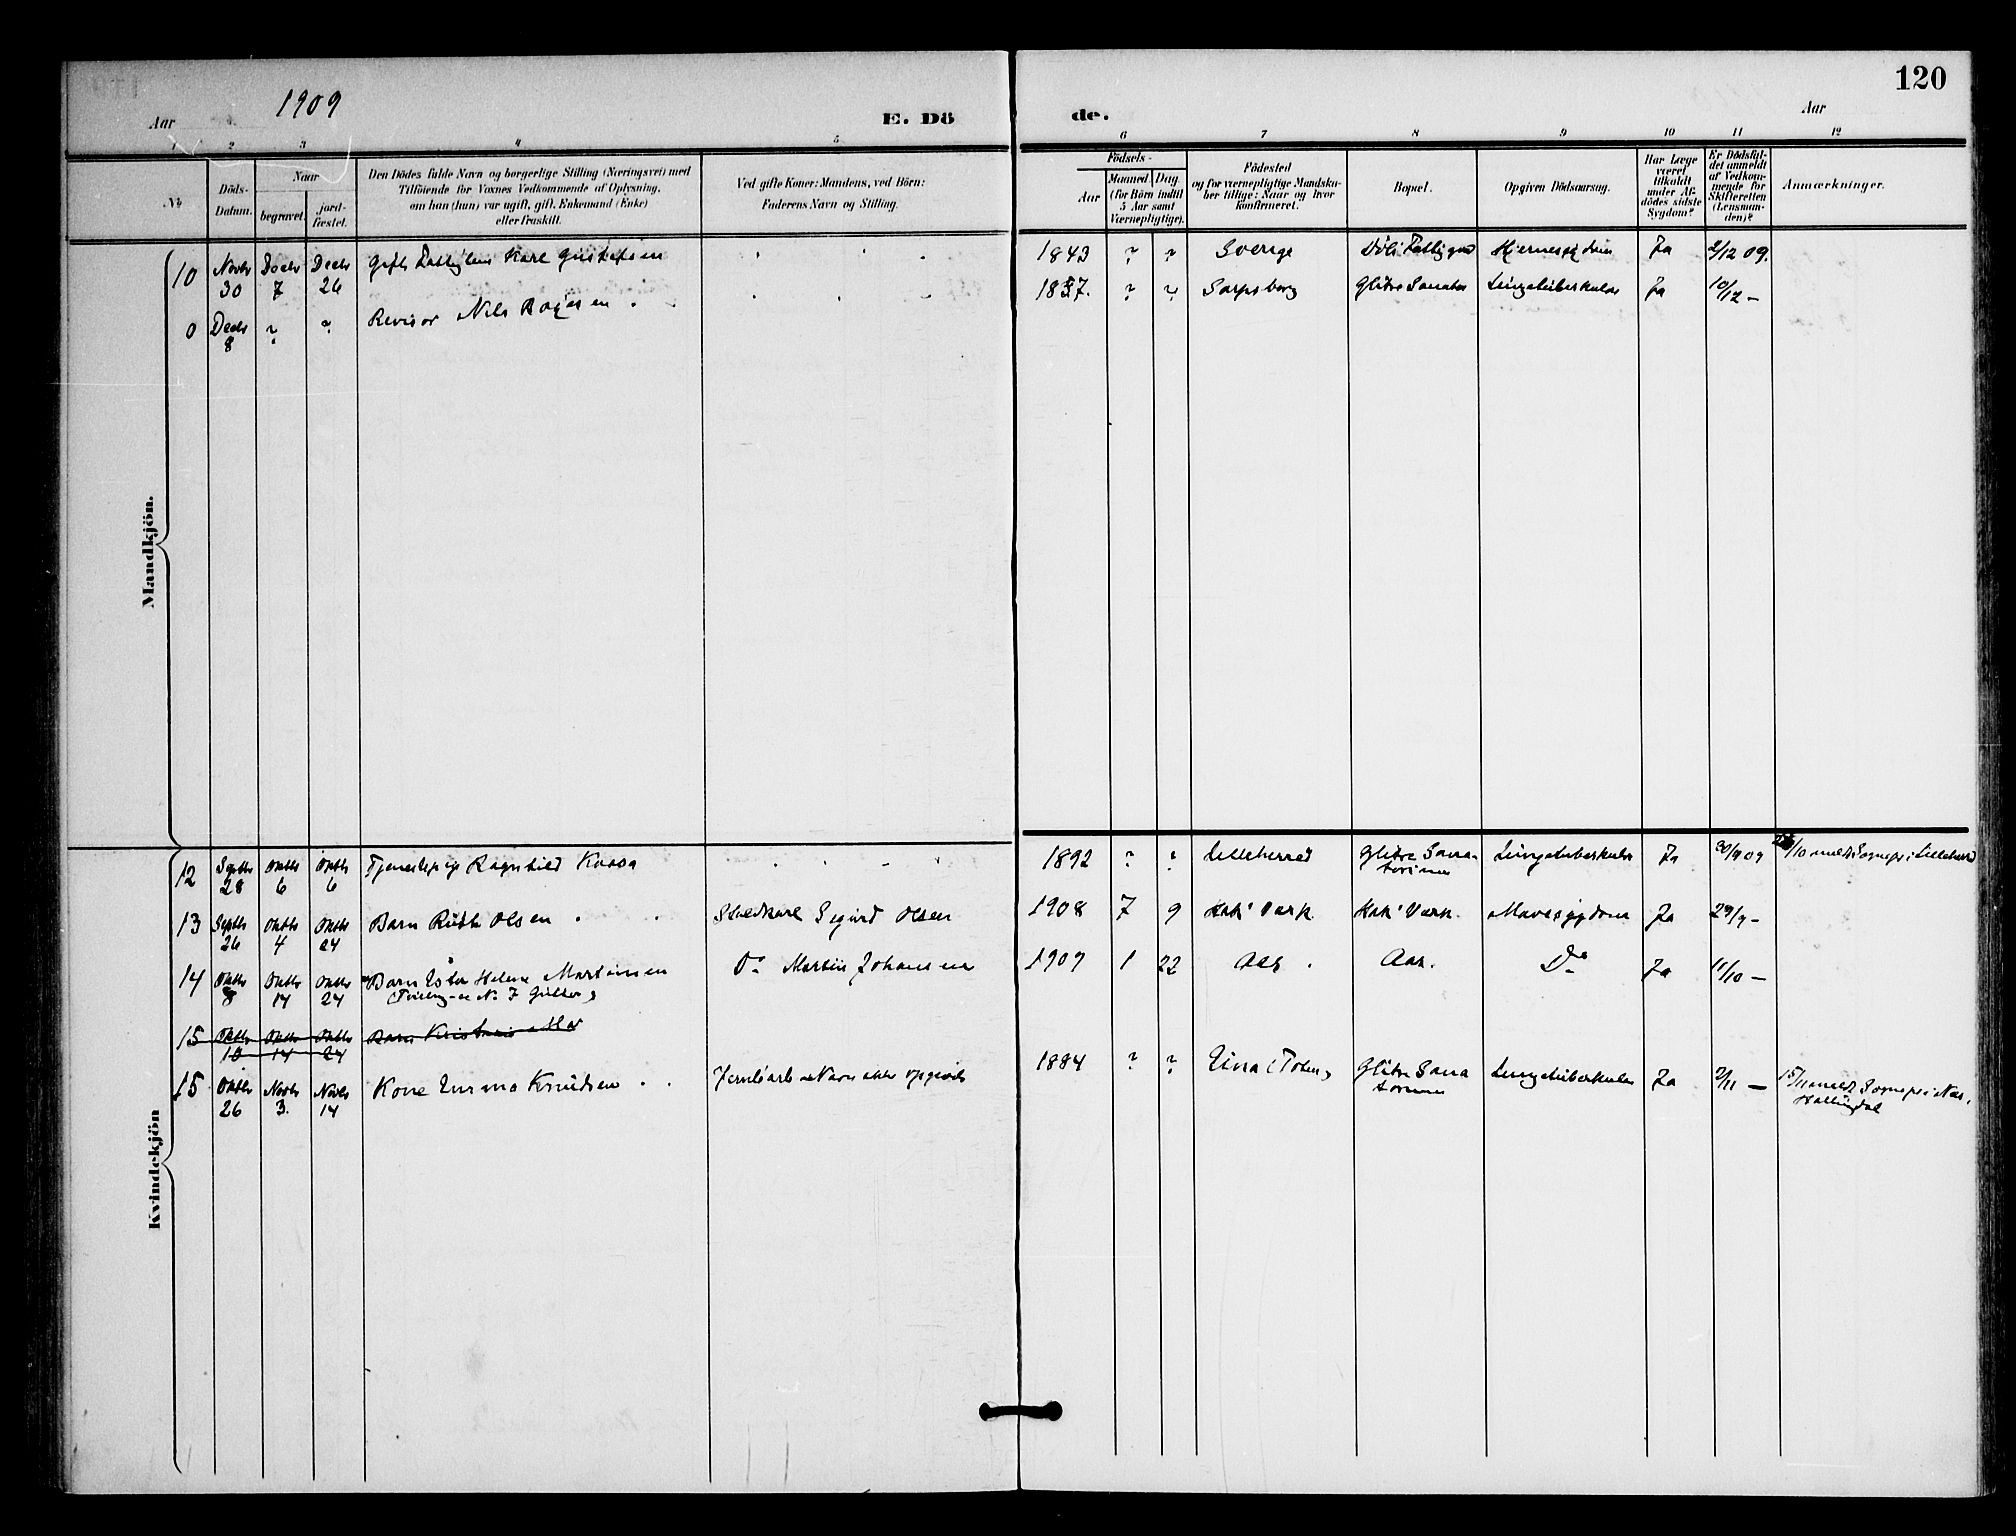 120
Aar 1909
E. Dö
de.
Aar
1 2 3 4 5
6 7 8 9 10 11 12
No
Döds-
Datum.
Naar
begravet.
jord-
fæstet.
Den Dödes fulde Navn og borgerlige Stilling (Næringsvei) med
Tilföiende for Voxnes Vedkommende af Oplysning,
om han (hun) var ugift, gift, Enkemand (Enke)
eller fraskilt.
Ved gifte Koner: Mandens, ved Börn:
Faderens Navn og Stilling.
Födsels-
Aar
Maaned. Dag.
(for Börn indtil
5 Aar samt
Værnepligtige).
Födested
og for værnepligtige Mandska-
ber tillige: Naar og hvor
konfirmeret.
Bopæl.
Opgiven Dödsaarsag.
Har Læge
været
tilkaldt
under Af-
dödes sidste
Sygdom?
Er Dödsfal-
det anmeldt
af Vedkom-
mende for
Skifteretten
(Lensman-
den)?
Anmærkninger.
Mandkjön.
10 Novbr 30 Decbr 7 Decbr 26 Gift Karl Gustafsen 1843 ? ? Sverge Hjernesygdom Ja 2/12 09.
0 Decbr 8 ? ? Revisor Nils 1857. ? ? Sarpsborg Glitre Sanator Lungetuberkulos Ja 10/12 –
Kvindekjön
12 Septbr 28 Oktbr 6 Oktbr 6 Tjenestepige Ragnhild Kaasa 1892 ? ? Lilleherred Glitre Sana-
torium Lungetuberkulos Ja 30/9 09 /10 meldt Sognepr i Lilleherred
13 Septbr 26 Oktbr 4 Oktbr 24 Barn Ruth Olsen Sigurd Olsen 1908 7 9 Hak. Værk Hak. Værk. Mavesygdom Ja 29/9 –
14 Oktbr 8 Oktbr 14 Oktbr 24 Barn Ester Helene Martinsen
(Tvilling No 7 )
Do Martin Johansen 1909 1 22 Aas. Aas. Do Ja 11/10 –
15 Oktbr 10 Oktbr 14 Oktbr 24 Barn
15 Oktbr 26 Novbr 3. Novbr 14 Kone Emma Knudsen Jernbarb – Navn ikke opgivet 1884 ? ? Eina (Toten) Glitre Sana
torium Lungetuberkulos Ja 2/11 – 15/11 meldt Sognepr i Nes,
Hallingdal